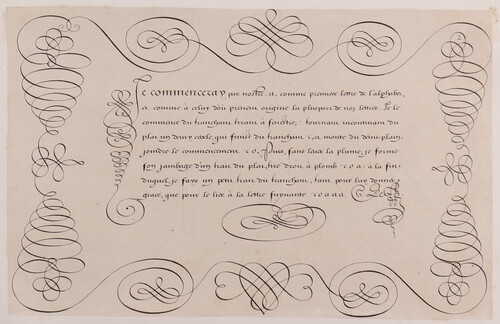 Je commenceray par nostre .a. comme premiere lettre de l'alphabet,
et comme à celuy d'où prenent origine la pluspart de noz lettres. Je le
commence du tranchant, tirant à senestre, tournant incontinant du
plat un demy cercle, qui finist du tranchant, et monte du demi-plain,
joindre le commencement .c o. Puis, sans lever la plume, je forme
son jambage d'un trait du plat, tiré droit à plomb .c o a. à la fin
duquel, je fays un petit trait du tranchant, tant pour luy donner
grace, que pour le lier à la lettre suyvante .c o a a a.